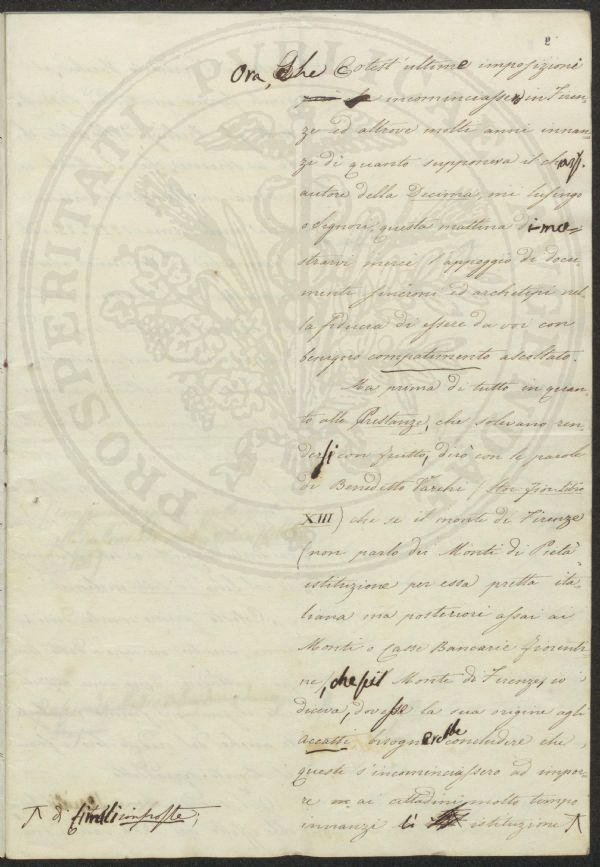 2
Ora, Che Cotest'ultime imposizioni
incominciassero in Firen-
ze ed altrove molti anni innan-
zi di quanto supponeva il chiariss.
autore della Decima, mi lusingo
o Signori, questa mattina dimo-
strarvi mercè l'appoggio di docu-
menti sincroni ed archetipi nel-
la fiducia di essere da voi con
benigno compatimento ascoltato.
Ma prima di tutto in quan-
to alle Prestanze, che solevano ren-
dersi con frutto, dirò con le parole
di Benedetto Varchi (Stor. Fior. Libro
XIII) che se il monte di Firenze
(non parlo dei Monti di Pietà
istituzione per essa pretta ita-
liana ma posteriori assai ai
Monti o Casse Bancarie Fiorenti-
ne, che se il Monte di Firenze, io
diceva, dovesse la sua origine agli
accatti bisognerebbe concludere che
questi s'incominciassero ad impor-
re ai cittadini molto tempo
innanzi istituzione
di simili imposte;
PROSPERITATI PUBLICAE